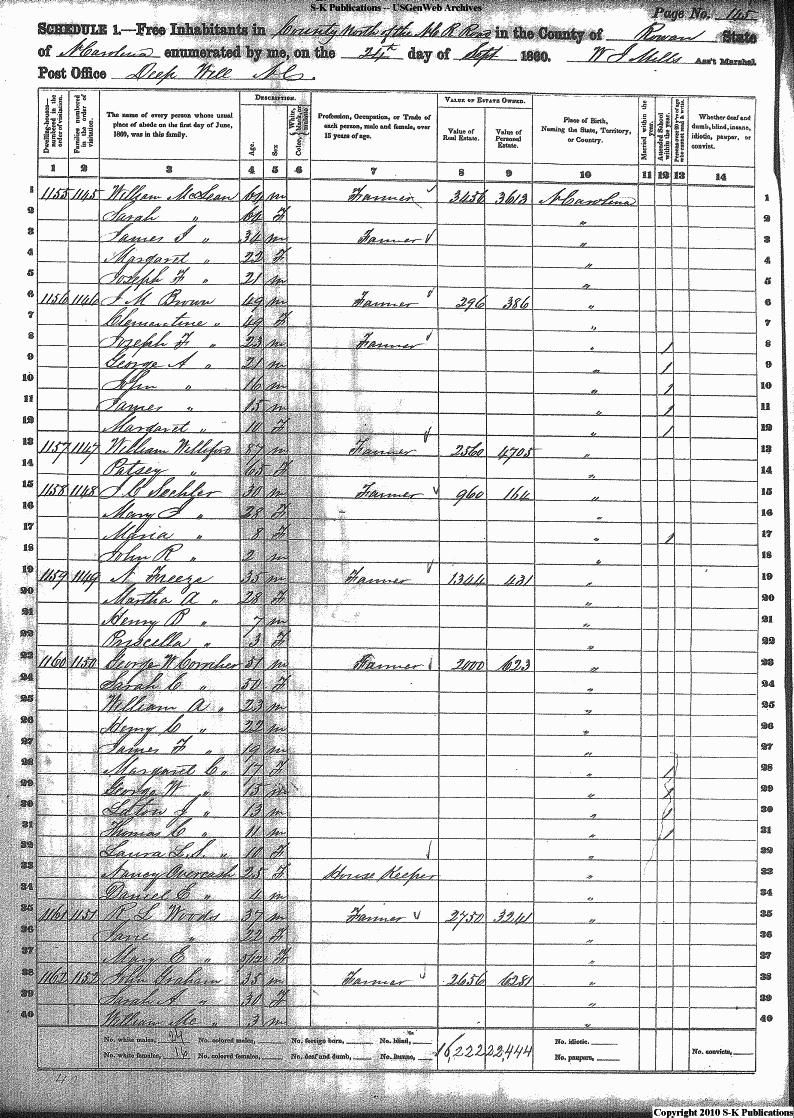 S-K Publications -- USGenWeb Archives
Page No. 145
SCHEDULE 1.—Free Inhabitants in County North of the N C R Road in the County of Rowan State
of N Carolina enumerated by me, on the 24th day of Sept 1860. W J Mills Ass't Marshal.
Post Office Deep Well N C.
Dwelling-houses—numbered in the order of visitation.
Families numbered in the order of visitation.
The name of every person whose usual place of abode on the first day of June, 1860, was in this family.
DESCRIPTION.
Age.
Sex
Color, White, black, or mulatto.
Profession, Occupation, or Trade of each person, male and female, over 15 years of age.
VALUE OF ESTATE OWNED.
Value of Real Estate.
Value of Personal Estate.
Place of Birth, Naming the State, Territory, or Country.
Married within the year.
Attended School within the year.
Whether deaf and dumb, blind, insane, idiotic, pauper, or convict.
1 2 3 4 5 6 7 8 9 10 11 12 13 14
1 1155 1145 William McLean 64 m Farmer 3456 3613 N Carolina 1
2 Sarah " 64 F " 2
3 James J " 34 m Farmer " 3
4 Margaret " 22 F " 4
5 Joseph F " 21 m " 5
6 1156 1146 J M Brown 49 m Farmer 296 386 " 6
7 Clementine " 49 F " 7
8 Joseph F " 23 m Farmer " 1 8
9 George A " 21 m " 1 9
10 John " 16 m " 1 10
11 James " 15 m " 1 11
12 Margaret " 10 F " 1 12
13 1157 1147 William Williford 87 m Farmer 2560 4705 " 13
14 Patsey " 65 F " 14
15 1158 1148 J C Sechler 30 m Farmer 960 164 " 15
16 Mary J " 28 F " 16
17 Maria " 8 F " 1 17
18 John R " 2 m " 18
19 1159 1149 N Freeze 35 m Farmer 1344 431 " 19
20 Martha A " 28 F " 20
21 Henry P " 7 m " 21
22 Priscella " 3 F " 22
23 1160 1150 George W Corriher 51 m Farmer 2000 623 " 23
24 Sarah C " 50 F " 24
25 William A " 23 m " 25
26 Henry C " 22 m " 26
27 James F " 19 m " 27
28 Margaret C " 17 F " 1 28
29 George W " 15 m " 1 29
30 Laton J " 13 m " 1 30
31 Thomas C " 11 m " 1 31
32 Laura L. A. " 10 F " 32
33 Nancy Overcash 25 F House Keeper " 33
34 Daniel E " 4 m " 34
35 1161 1151 R L Woods 37 m Farmer 2750 3241 " 35
36 Jane " 22 F " 36
37 Mary E " F " 37
38 1162 1152 John Graham 35 m Farmer 2656 6281 " 38
39 Sarah A " 30 F " 39
40 William Mc " 3 m " 40
No. white males, 24 No. colored males, No. foreign born, No. blind, 16,222 22,444 No. idiotic. No. convicts,
No. white females, 16 No. colored females, No. deaf and dumb, No. insane, No. paupers,
Copyright 2010 S-K Publications